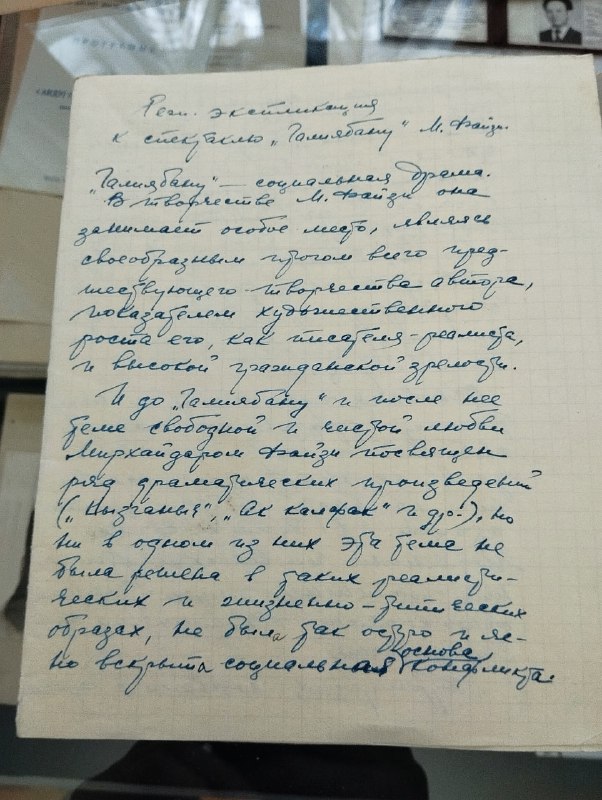 ПРОГРАММА
Реж. экспликация
к спектаклю „Галиябану" М. Файзи.
„Галиябану" — социальная драма.
В творчестве М. Файзи она
занимает особое место, являясь
своеобразным итогом всего пред-
шествующего творчества автора,
показателем художественного
роста его, как писателя-реалиста,
и высокой гражданской зрелости.
И до „Галиябану" и после нее
теме свободной и чистой любви
Мирхайдаром Файзи посвящен
ряд драматических произведений
(„Кызганыч", „Ак калфак" и др.), но
ни в одном из них эта тема не
была решена в таких реалисти-
ческих и жизненно-типических
образах, не была так остро и яс-
но вскрыта социальная основа конфликта.